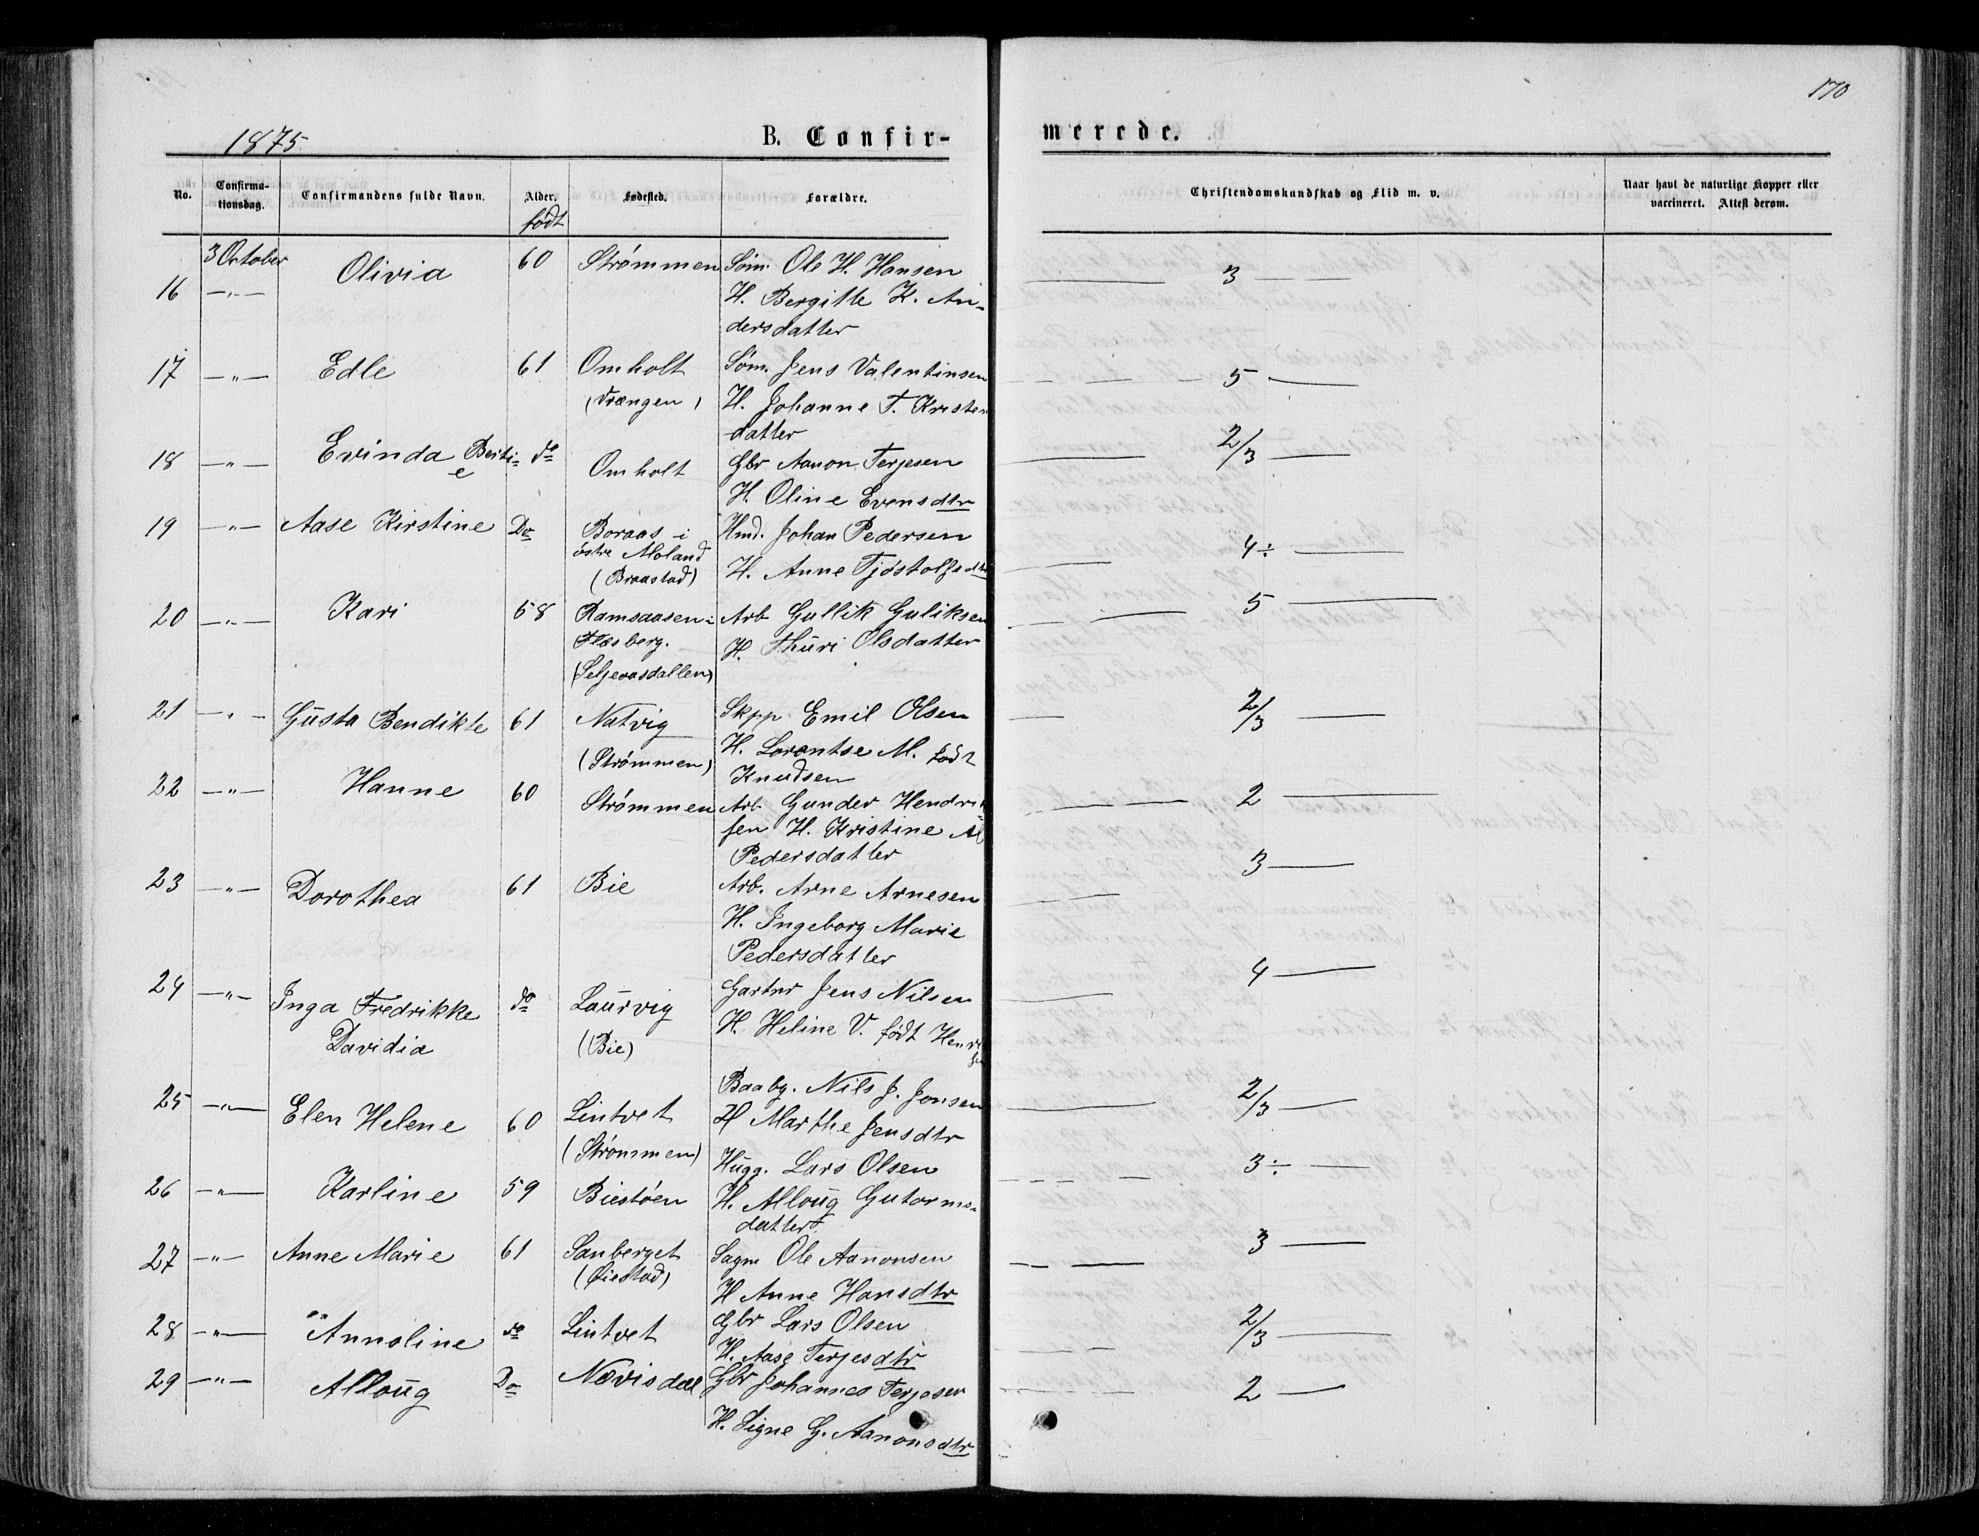 170
1875
B. Confir-
merede.
No.
Confirma-
tionsdag.
Confirmandens fulde Navn.
Alder.
født
Fødested.
Forældre.
Christendomskundskab og Flid m. v.
Naar havt de naturlige Kopper eller
vaccineret. Attest derom.
3 October
16 —"— Olivia 60 Strømmen Søm. Ole H. Hansen 3
H. Bergitte K. An-
dersdatter
17 —"— Edle 61 Omholt Søm. Jens Valentinsen 5
(Vrængen) H. Johanne T. Kristen
datter
18 —"— Evinda Berti- do Omholt Gbr Aanon Terjesen 2/3
e H. Oline Evensdtr
19 —"— Aase Kirstine Do Boraas i Hmd. Johan Pedersen 4÷
østre Moland
(Braastad) H. Anne Tjøstolfsdtr
20 —"— Kari 58 Ramsaasen i Arb Gullik Guliksen 5
Flesberg. H. Thuri Olsdatter
(Seljevasdallen)
21 —"— Gusta Bendikte 61 Natvig Skpp. Emil Olsen 2/3
(Strømmen) H. Lorentse M. født
Knudsen
22 —"— Hanne 60 Strømmen Arb. Gunder Hendrik 2
sen H. Kristine
Pedersdatter
23 —"— Dorothea 61 Bie Arb. Arne Arnesen 3
H. Ingeborg Marie
Pedersdatter
24 —"— Inga Fredrikke do Laurvig Gartnr Jens Nilsen 4
Davidia (Bie) H. Heline V. født
25 —"— Elen Helene 60 Lintvet Baabg. Nils J. Jonsen 2/3
(Strømmen) H Marthe Jensdtr
26 —"— Karline 59 Biestøen Hugg. Lars Olsen 3÷
H. Alloug Gutorms-
datter
27 —"— Anne Marie 61 Sanberget Sagm Ole Aanonsen 3
(Øiestad) H Anne Hansdtr
28 —"— Annoline do Lintvet Gbr Lars Olsen 2/3
H. Aase Terjesdtr
29 —"— Alloug Do Nævisdal Gbr Johannes Terjesen 2
H. Signe G. Aanonsdtr